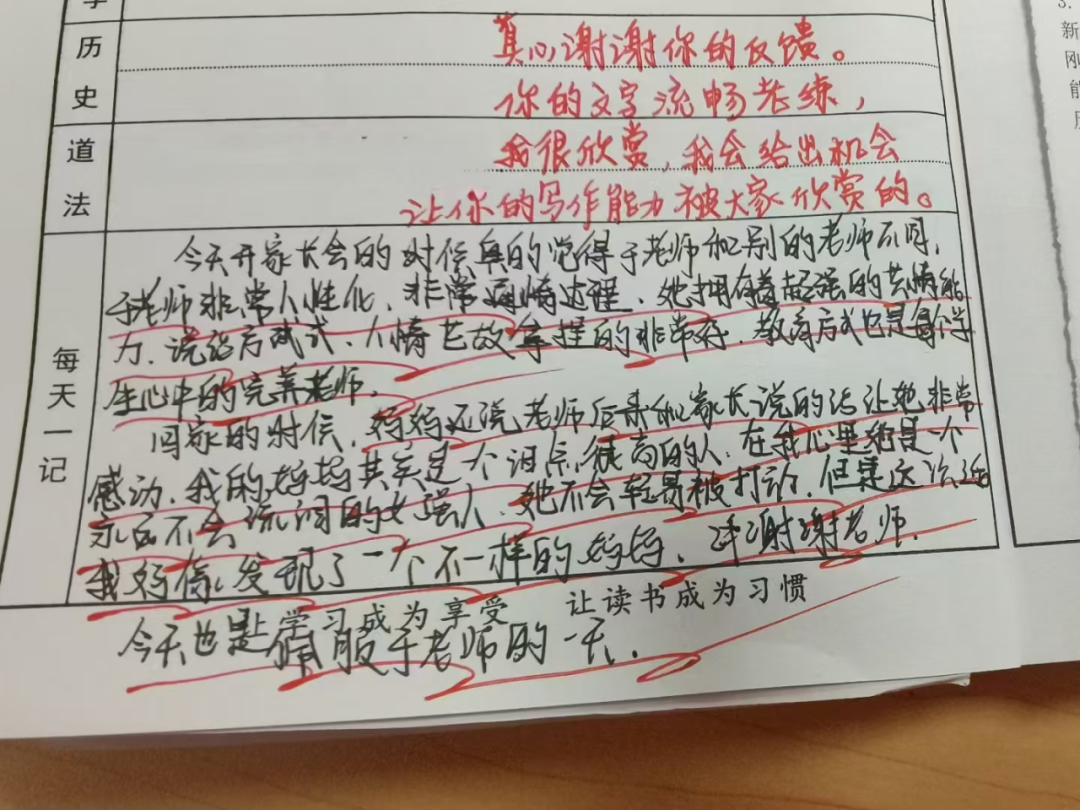 学
历史
真心谢谢你的反馈。
你的文字流畅老练，
道法
我很欣赏，我会给出机会
让你的写作能力被大家欣赏的。
每天一记
今天开家长会的时候真的觉得于老师和别的老师不同，
于老师非常人性化，非常通情达理，她拥有着超强的共情能
力，说话方式，人情世故拿捏的非常好，教育方式也是每个学
生心中的完美老师。
回家的时候，妈妈还说老师后来和家长说的话让她非常
感动，我的妈妈其实是个泪点很高的人，在我心里她是一个
永远不会流泪的女强人，她不会轻易被打动，但是这次
我妈发现了一个不一样的妈妈，谢谢老师。
让学习成为享受 让读书成为习惯
今天也是佩服于老师的一天。
3.
新
刚
能